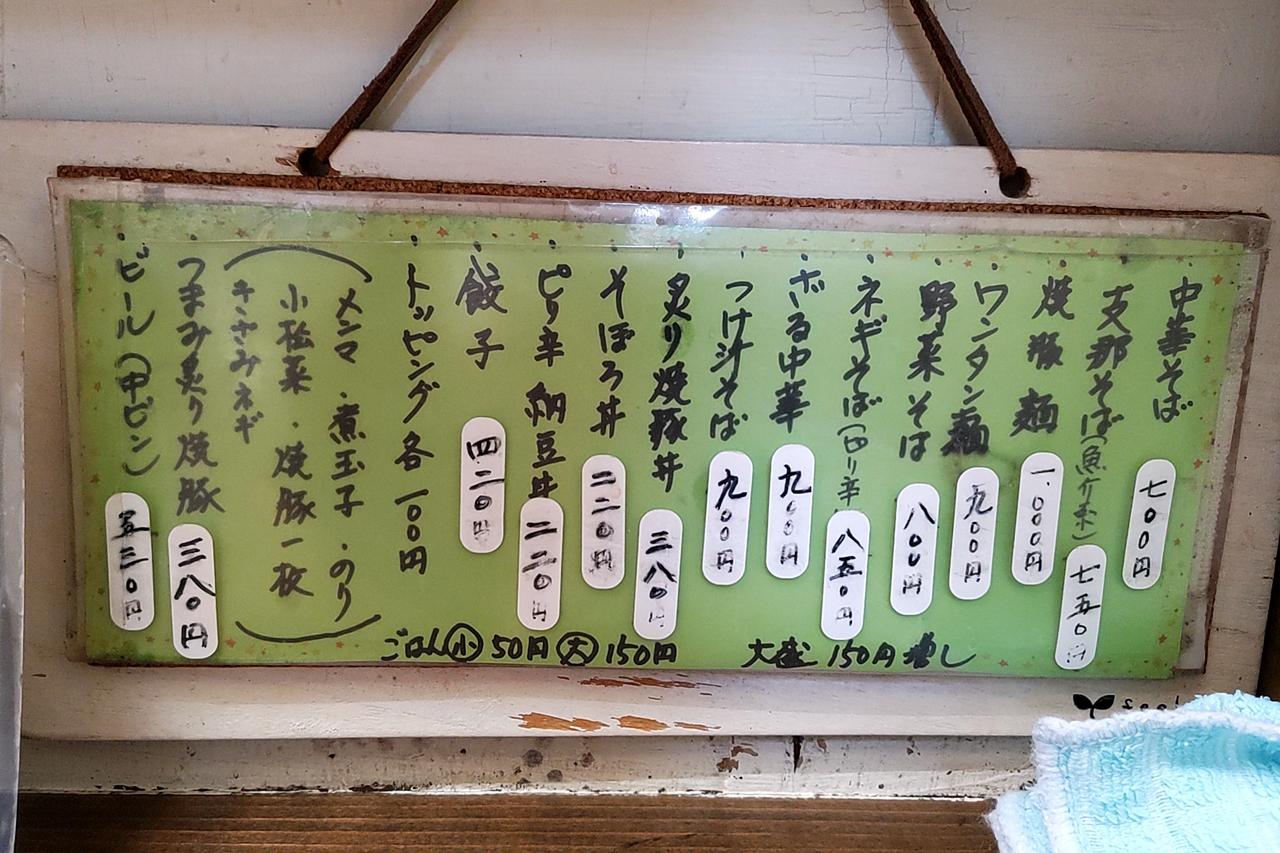 中華そば 七〇〇円
支那そば(魚介系) 七五〇円
焼豚麺 一、〇〇〇円
ワンタン麺 九〇〇円
野菜そば 八〇〇円
ネギそば(ピリ辛) 八五〇円
ざる中華 九〇〇円
つけ汁そば 九〇〇円
炙り焼豚丼 三八〇円
そぼろ丼 二二〇円
ピリ辛納豆丼 二二〇円
餃子 四二〇円
トッピング各一〇〇円
(メンマ・煮玉子・のり
小松菜・焼豚一枚
きざみネギ)
つまみ炙り焼豚 三八〇円
ビール(中ビン) 五三〇円
ごはん小50円大150円
大盛150円増し